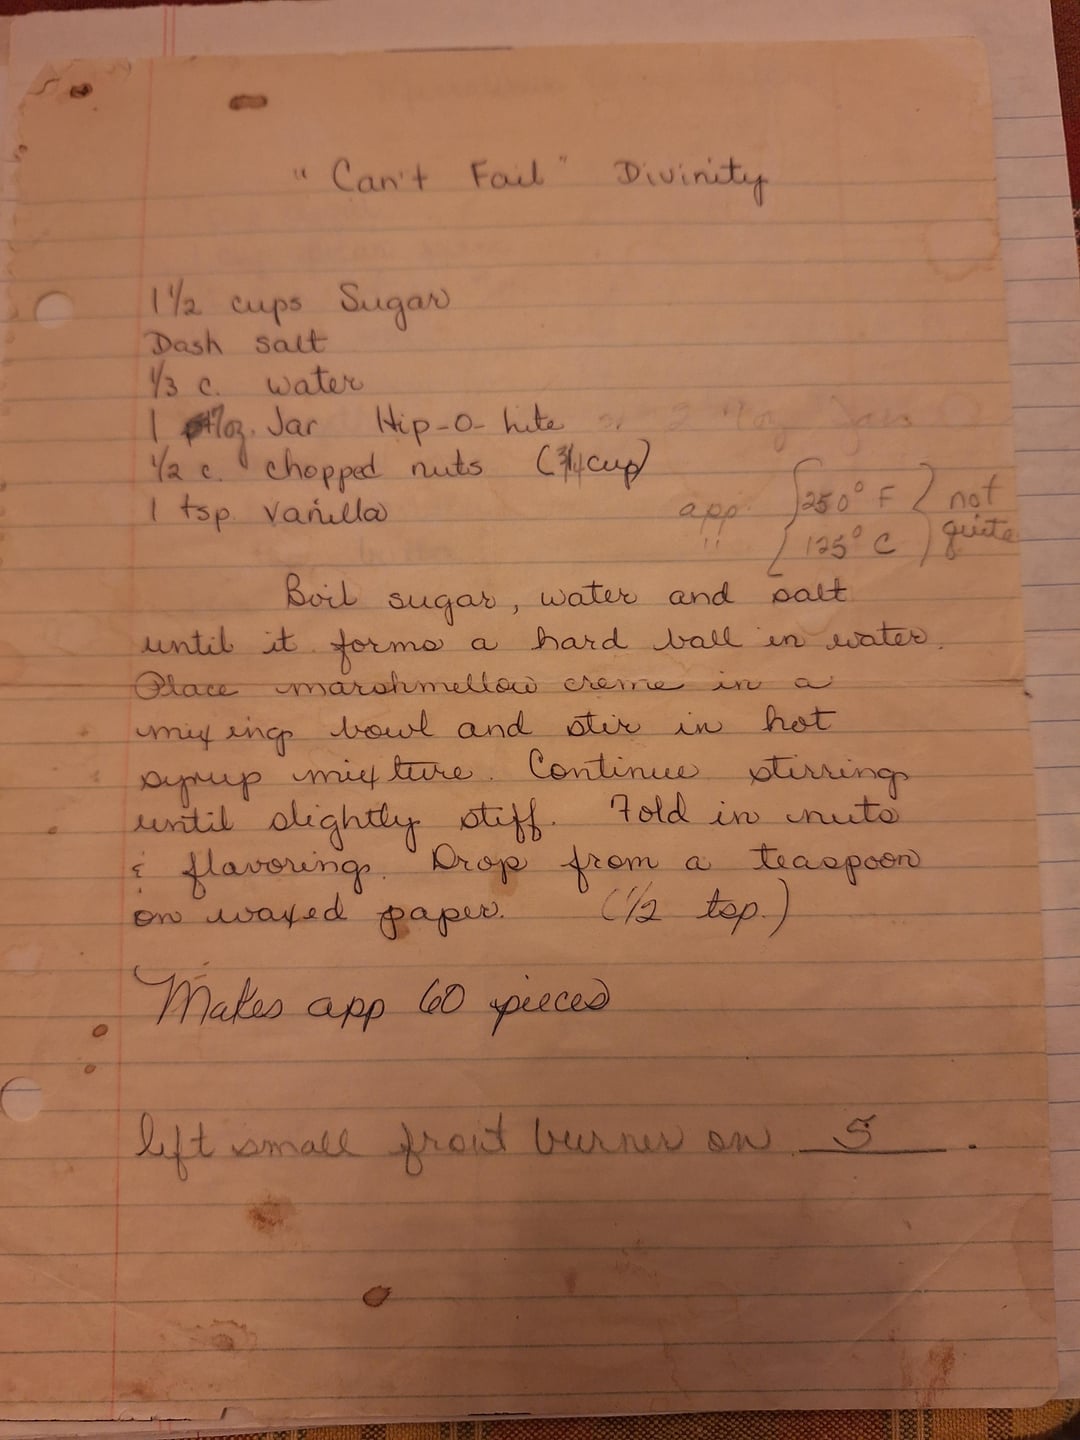 "Can't Fail" Divinity
1 1/2 cups Sugar
Dash salt
1/3 c. water
1 7oz. Jar Hip-O-lite or 2 7oz Jars
1/2 c. chopped nuts (3/4 cup)
1 tsp. vanilla
app. 250° F not
" 125° C quite
Boil sugar, water and salt
until it forms a hard ball in water.
Place marshmellow creme in a
mixing bowl and stir in hot
syrup mixture. Continue stirring
until slightly stiff. Fold in nuts
& flavoring. Drop from a teaspoon
on waxed paper. (1/2 tsp.)
Makes app 60 pieces
left small front burner on 5.